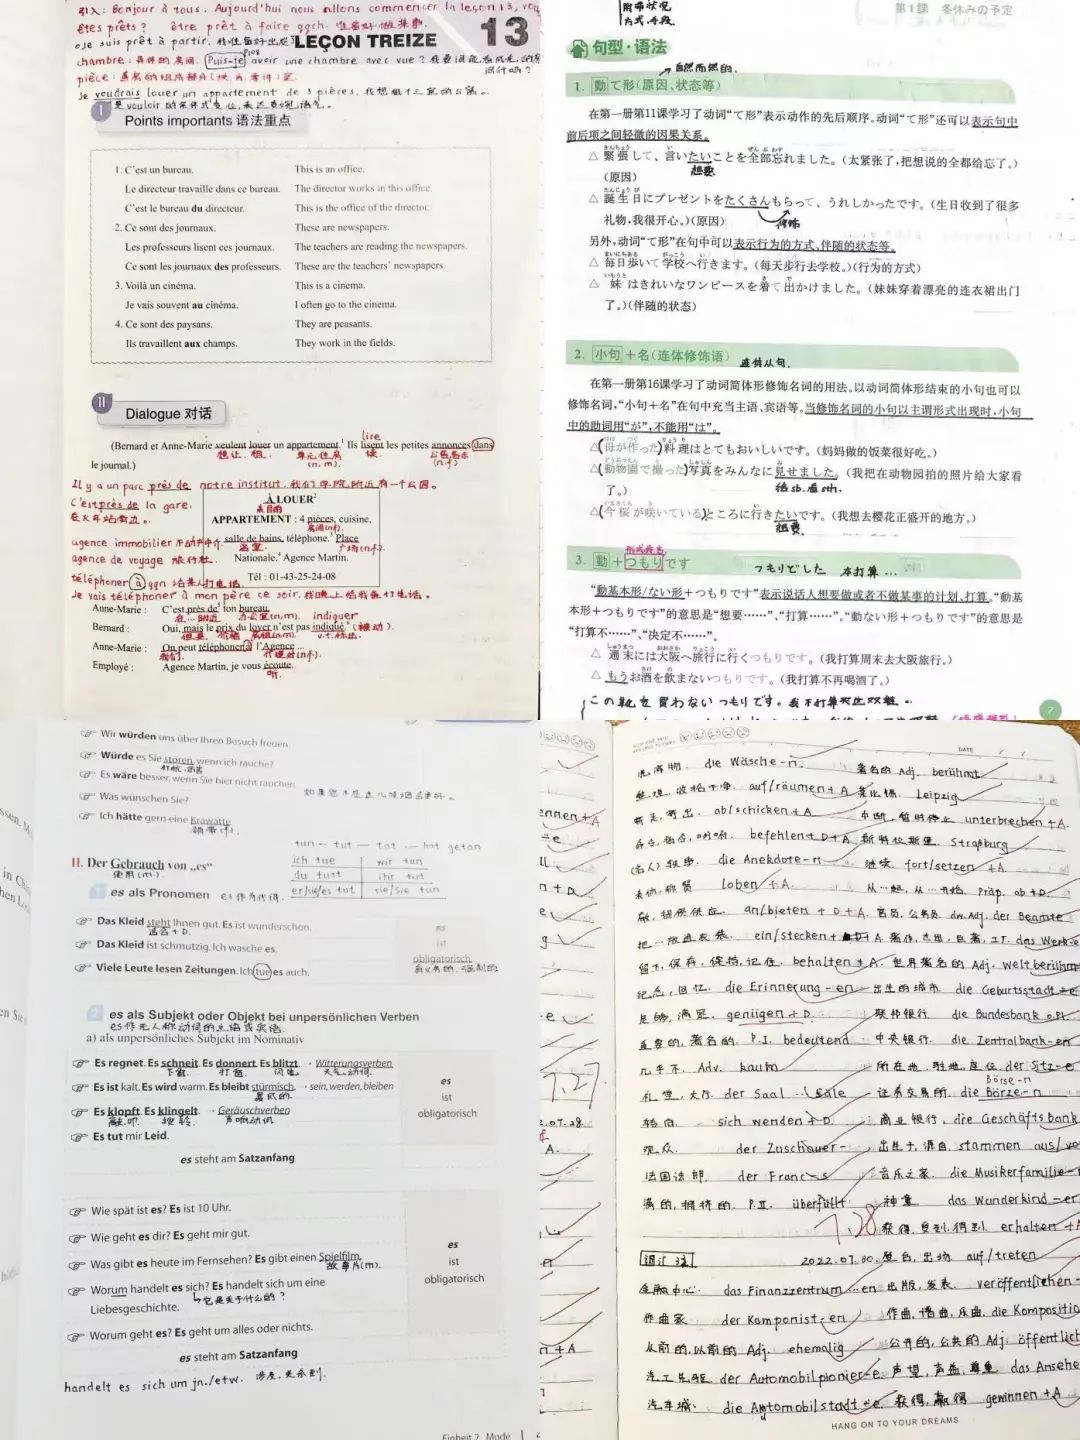 引入: Bonjour à tous. Aujourd'hui nous allons commencer la leçon 13, vous
êtes prêts? être prêt à faire qqch. 准备好做某事.
Je suis prêt à partir. 我准备好出发
LEÇON TREIZE 13
chambre: 具体的房间. Puis-je avoir une chambre avec vue?
pièce:
Je voudrais louer un appartement de 3 pièces. 我想租个三室的公寓。
是 vouloir 的条件式变位, 表达委婉语气.
I
Points importants 语法重点
1. C'est un bureau. This is an office.
Le directeur travaille dans ce bureau. The director works in this office.
C'est le bureau du directeur. This is the office of the director.
2. Ce sont des journaux. These are newspapers.
Les professeurs lisent ces journaux. The teachers are reading the newspapers.
Ce sont les journaux des professeurs. These are the teachers' newspapers.
3. Voilà un cinéma. This is a cinema.
Je vais souvent au cinéma. I often go to the cinema.
4. Ce sont des paysans. They are peasants.
Ils travaillent aux champs. They work in the fields.
II
Dialogue 对话
lire
(Bernard et Anne-Marie veulent louer un appartement.¹ Ils lisent les petites annonces dans
想让 租. 单元住房 (n.m). 读. (n.f)
le journal.)
Il y a un parc près de notre institut. 我们学院附近有一个公园。
C'est près de la gare. À LOUER²
在火车站旁边。
APPARTEMENT : 4 pièces, cuisine,
房间(n.f).
agence immobilier 不动产中介 salle de bains, téléphone.³ Place
浴室. 广场(n.f).
agence de voyage 旅行社. Nationale.⁴ Agence Martin.
téléphoner à qqn 给某人打电话 Tél : 01-43-25-24-08
Je vais téléphoner à mon père ce soir. 我晚上给我爸打电话。
Anne-Marie : C'est près de⁵ ton bureau.
在...附近 办公室(n.m). indiquer
Bernard : Oui, mais le prix du loyer n'est pas indiqué.⁶ (被动).
但是 价格 房租(n.m) v.t. 标出.
Anne-Marie : On peut téléphoner à l'Agence ...
我们 代理处(n.f).
Employé : Agence Martin, je vous écoute.
听.
附带状况
方式·手段
第1课 冬休みの予定
句型·语法
自然而然的.
1. 動て形(原因、状态等)
在第一册第11课学习了动词“て形”表示动作的先后顺序。动词“て形”还可以表示句中
前后项之间轻微的因果关系。
△ 緊張して、言いたいことを全部忘れました。(太紧张了,把想说的全都给忘了。)
きんちょう い ぜん ぶ わす
想要
(原因)
△ 誕生日にプレゼントをたくさんもらって、うれしかったです。(生日收到了很多
たんじょう び
礼物,我很开心。)(原因) 修饰
另外,动词“て形”在句中可以表示行为的方式、伴随的状态等。
△ 毎日歩いて学校へ行きます。(每天步行去学校。)(行为的方式)
まいにちある がっこう い
△ 妹はきれいなワンピースを着て出かけました。(妹妹穿着漂亮的连衣裙出门
いもうと き で
了。)(伴随的状态)
2. 小句+名(连体修饰语) 连体从句.
在第一册第16课学习了动词简体形修饰名词的用法。以动词简体形结束的小句也可以
修饰名词,“小句+名”在句中充当主语、宾语等。当修饰名词的小句以主谓形式出现时,小句
中的助词用“が”,不能用“は”。
△(母が作った)料理はとてもおいしいです。(妈妈做的饭菜很好吃。)
はは つく りょう り
△(動物園で撮った)写真をみんなに見せました。(我把在动物园拍的照片给大家看
どうぶつえん と しゃしん み
了。) 给sb.看sth.
△(今桜が咲いている)ところに行きたいです。(我想去樱花正盛开的地方。)
いまさくら さ い
想要
形式名词
3. 動+つもりです つもりでした 本打算...
“動基本形/ない形+つもりです”表示说话人想要做或者不做某事的计划、打算。“動基
本形+つもりです”的意思是“想要……”、“打算……”。“動ない形+つもりです”的意思是
“打算不……”、“决定不……”。
△ 週末には大阪へ旅行に行くつもりです。(我打算周末去大阪旅行。)
しゅうまつ おおさか りょこう い
△ もうお酒を飲まないつもりです。(我打算不再喝酒了。)
さけ の
この靴を買わないつもりです。我不打算买这双鞋。
7
Wir würden uns über Ihren Besuch freuen.
Würde es Sie stören, wenn ich rauche?
打扰、妨害
Es wäre besser, wenn Sie hier nicht rauchen.
如果您不在这儿吸烟更好。
Was wünschen Sie?
Ich hätte gern eine Krawatte.
领带(f).
tun - tut - tat - hat getan
II. Der Gebrauch von „es“
使用(m).
ich tue wir tun
du tust ihr tut
er/sie/es tut sie/Sie tun
1 es als Pronomen es作为代词.
Das Kleid steht Ihnen gut. Es ist wunderschön.
适合+D.
Das Kleid ist schmutzig. Ich wasche es.
Viele Leute lesen Zeitungen. Ich tue es auch.
es
ist
obligatorisch
有义务的, 强制的
2 es als Subjekt oder Objekt bei unpersönlichen Verben
es作无人称动词的主语或宾语.
a) als unpersönliches Subjekt im Nominativ
Es regnet. Es schneit. Es donnert. Es blitzt. → Witterungsverben
下雪 打雷 闪电 天气动词.
Es ist kalt. Es wird warm. Es bleibt stürmisch. → sein, werden, bleiben
暴风的.
Es klopft. Es klingelt. → Geräuschverben
敲,叩. 按铃. 声响动词
Es tut mir Leid.
es
ist
obligatorisch
es steht am Satzanfang
Wie spät ist es? Es ist 10 Uhr.
Wie geht es dir? Es geht mir gut.
Was gibt es heute im Fernsehen? Es gibt einen Spielfilm.
故事片(m).
Worum handelt es sich? Es handelt sich um eine
它是关于什么的?
Liebesgeschichte.
Worum geht es? Es geht um alles oder nichts.
es
ist
obligatorisch
es steht am Satzanfang
handelt es sich um jn./etw. 涉及,关系到.
Einheit 2 Mode
DATE
洗涤物. die Wäsche-n. 著名的 Adj. berühmt
整理, 收拾干净. auf/räumen+A 莱比锡. Leipzig
寄走, 寄出. ab/schicken+A 中断, 暂时停止 unterbrechen+A.
befehlen+D+A. 斯特拉斯堡. Straßburg
(名人)轶事. die Anekdote-n 继续. fort/setzen+A.
表扬, 称赞 loben+A. 从...起, 从...开始. Präp. ab+D.
an/bieten+D+A. 官员, 公务员 der Beamte
ein/stecken+A 著作, 杰出, 巨著, 工厂 das Werk-e
留下, 保存, 保持, 记住. behalten+A. 世界著名的 Adj. weltberühmt
纪念, 回忆. die Erinnerung-en 出生的城市 die Geburtsstadt-e
足够, 满足. genügen+D. 联邦银行 die Bundesbank o.Pl.
重要的, 著名的. P.I. bedeutend 中央银行 die Zentralbank-en
几乎不. Adv. kaum 所在地, 驻地, 座位 der Sitz-e
礼堂, 大厅 der Saal .. Säle 证券交易所. die Börse-n
Börse-n
转向. sich wenden+D. 商业银行. die Geschäftsbank
观众. der Zuschauer- 出生于, 源自 stammen aus/von
法国法郎. der Franc-s 音乐之家. die Musikerfamilie-n
满的, 拥挤的. P.II. überfüllt 神童 das Wunderkind-er
7.28 获得, 受到, 得到. erhalten+A
词汇 12 2022.07.30. 登台, 出场 auf/treten
金融中心. das Finanzzentrum-en 出版, 发表. veröffentlichen-
作曲家 der Komponist-en 作曲, 谱曲, 乐曲. die Komposition
从前的, 以前的 Adj. ehemalig 公开的, 公共的 Adj. öffentlich
汽车先驱 der Automobilpionier-e. 声望, 声益, 尊重 das Ansehen
汽车城. die Automobilstadt-e. 获得, 赢得 gewinnen+A.
7.27
HANG ON TO YOUR DREAMS